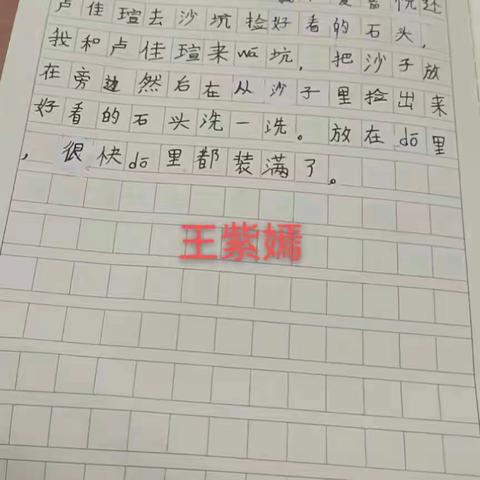 卢佳瑄去沙坑捡好看的石头,
我和卢佳瑄来wā坑,把沙子放
在旁边然后在从沙子里捡出来
好看的石头洗一洗。放在dōu里
,很快dōu里都装满了。
王紫嫣